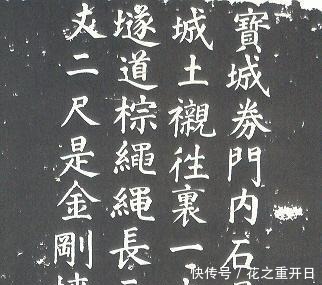 寶城券門內石
城土襯徃裏一
墜道棕繩繩長
丈二尺是金剛
快传号／花之重开日